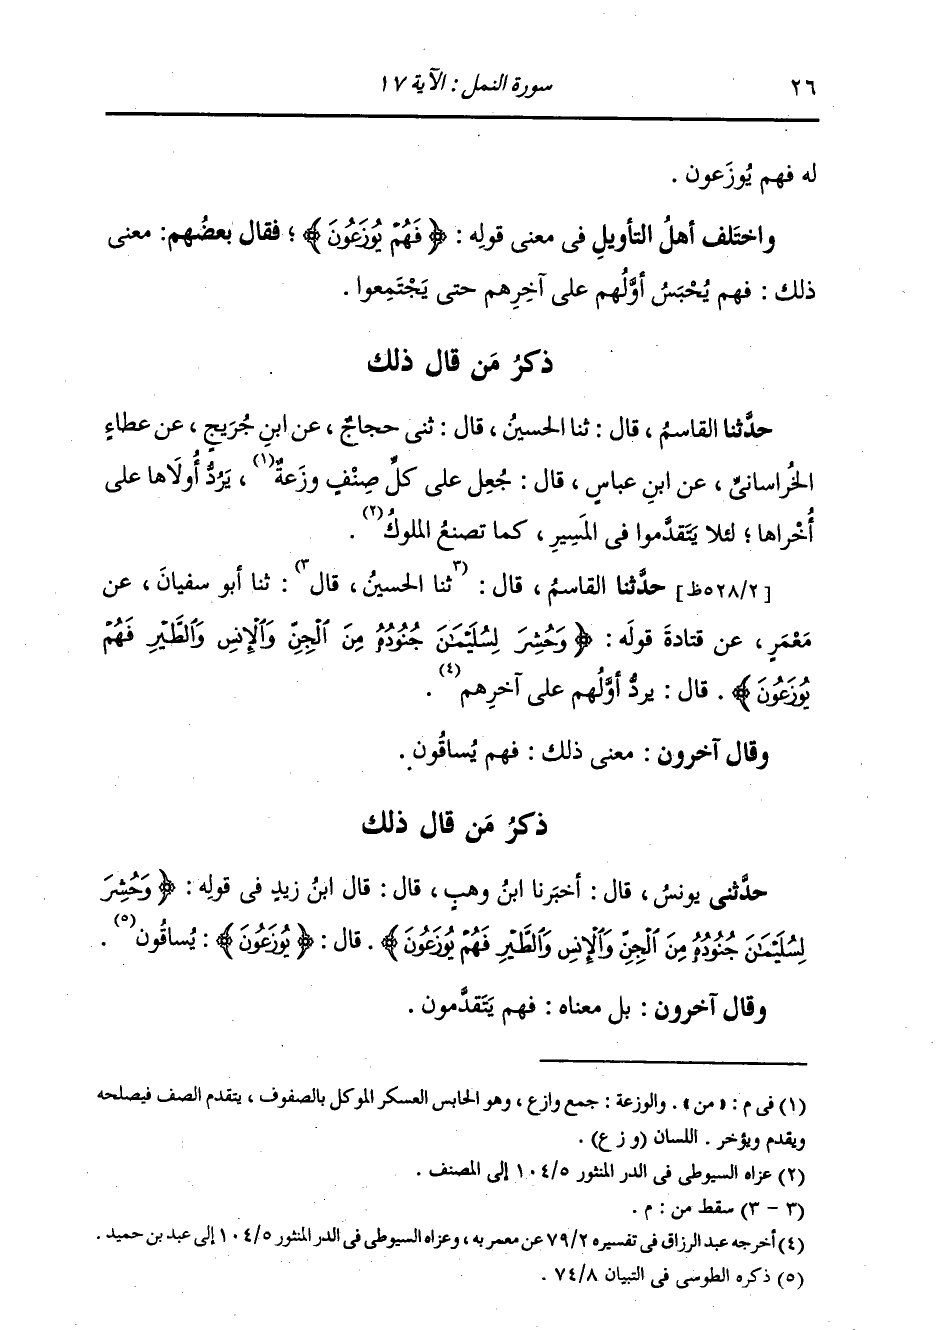 ٢٦ سورة النمل : الآية ١٧
له فهم يُوزَعون .
واختَلف أهلُ التأويلِ فى معنى قولِه : ﴿ فَهُمْ يُوزَعُونَ ﴾ ؛ فقال بعضُهم: معنى
ذلك : فهم يُحْبَسُ أوَّلُهم على آخِرِهم حتى يَجْتَمِعوا .
ذكرُ مَن قال ذلك
حدَّثنا القاسمُ ، قال : ثنا الحسينُ ، قال : ثنى حجاجٌ ، عن ابنِ جُرَيجٍ ، عن عطاءٍ
الخُراسانىِّ ، عن ابنِ عباسٍ ، قال : جُعل على كلِّ صِنْفٍ وزَعةٌ(١) ، يَرُدُّ أُولَاها على
أُخْراها ؛ لئلا يَتَقدَّموا فى المَسِيرِ ، كما تصنعُ الملوكُ(٢) .
[٥٢٨/٢ظ] حدَّثنا القاسمُ ، قال : (٣ثنا الحسينُ ، قال٣) : ثنا أبو سفيانَ ، عن
مَعْمَرٍ ، عن قتادةَ قولَه : ﴿ وَحُشِرَ لِسُلَيْمَٰنَ جُنُودُهُ مِنَ ٱلْجِنِّ وَٱلْإِنسِ وَٱلطَّيْرِ فَهُمْ
يُوزَعُونَ ﴾ . قال : يردُّ أوَّلُهم على آخرِهم(٤) .
وقال آخرون : معنى ذلك : فهم يُساقُون .
ذكرُ مَن قال ذلك
حدَّثنى يونسُ ، قال : أخبَرنا ابنُ وهبٍ ، قال : قال ابنُ زيدٍ فى قولِه : ﴿ وَحُشِرَ
لِسُلَيْمَٰنَ جُنُودُهُ مِنَ ٱلْجِنِّ وَٱلْإِنسِ وَٱلطَّيْرِ فَهُمْ يُوزَعُونَ ﴾ . قال : ﴿ يُوزَعُونَ ﴾ : يُساقُون(٥) .
وقال آخرون : بل معناه : فهم يَتَقدَّمون .
(١) فى م : « من » . والوزعة : جمع وازع ، وهو الحابس العسكر الموكل بالصفوف ، يتقدم الصف فيصلحه
ويقدم ويؤخر . اللسان (و ز ع) .
(٢) عزاه السيوطى فى الدر المنثور ١٠٤/٥ إلى المصنف .
(٣ - ٣) سقط من : م .
(٤) أخرجه عبد الرزاق فى تفسيره ٧٩/٢ عن معمر به ، وعزاه السيوطى فى الدر المنثور ١٠٤/٥ إلى عبد بن حميد .
(٥) ذكره الطوسى فى التبيان ٧٤/٨ .